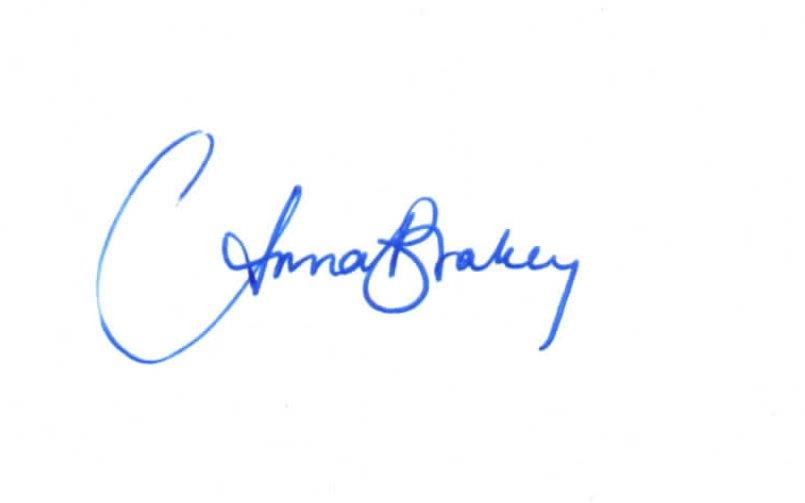 C Anna Brakey